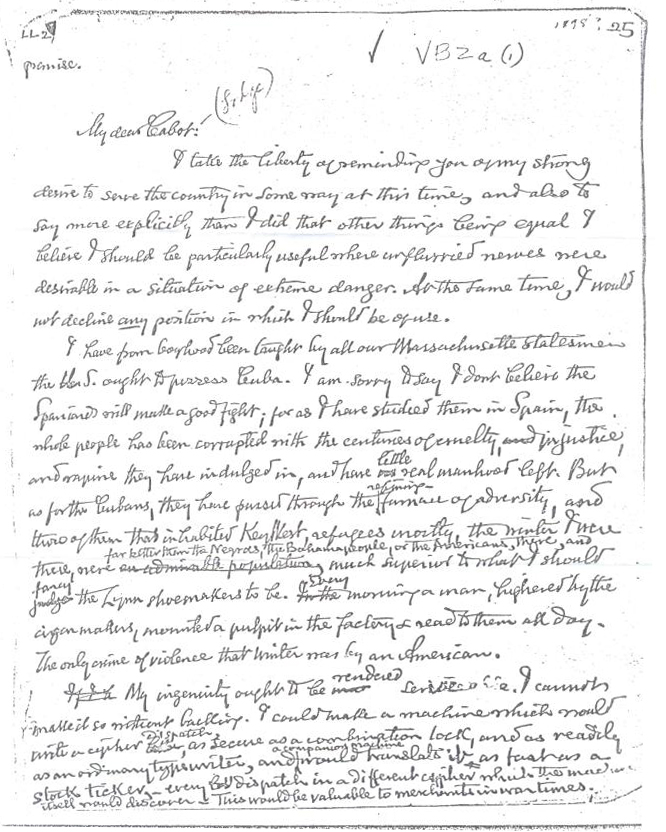 LL 2
1898? 25
✓ VB2a(1)
premise.
My dear Cabot:
I take the liberty of reminding you of my strong
desire to serve the country in some way at this time, and also to
say more explicitly than I did that other things being equal I
believe I should be particularly useful where unflurried nerves were
desirable in a situation of extreme danger. At the same time, I would
not decline any position in which I should be of use.
I have from boyhood been taught by all our Massachusetts statesmen
the U.S. ought to possess Cuba. I am sorry to say I dont believe the
Spaniards will make a good fight; for as I have studied them in Spain, the
whole people has been corrupted with the centuries of cruelty, and injustice,
little
and rapine they have indulged in, and have no real manhood left. But
refining
as for the Cubans, they have passed through the furnace of adversity, and
those of them that inhabited Key West, refugees mostly, the winter I were
far better than the Negroes, the Bahama people, or the Americans, there, and
there, were an admirable population, much superior to what I should
fancy
judge the Lynn shoemakers to be. In the morning a man, highered by the
Every
cigar makers, mounted a pulpit in the factory & read to them all day.
The only crime of violence that winter was by an American.
rendered
My ingenuity ought to be I cannot
make it so without backing. I could make a machine which would
dispatch
write a cipher as secure as a combination lock, and as readily
a companion machine
as an ordinary typewriter, and would translate it as fast as a
stock ticker, – every dispatch in a different cipher which the machine
itself would discover – This would be valuable to merchants in war times.